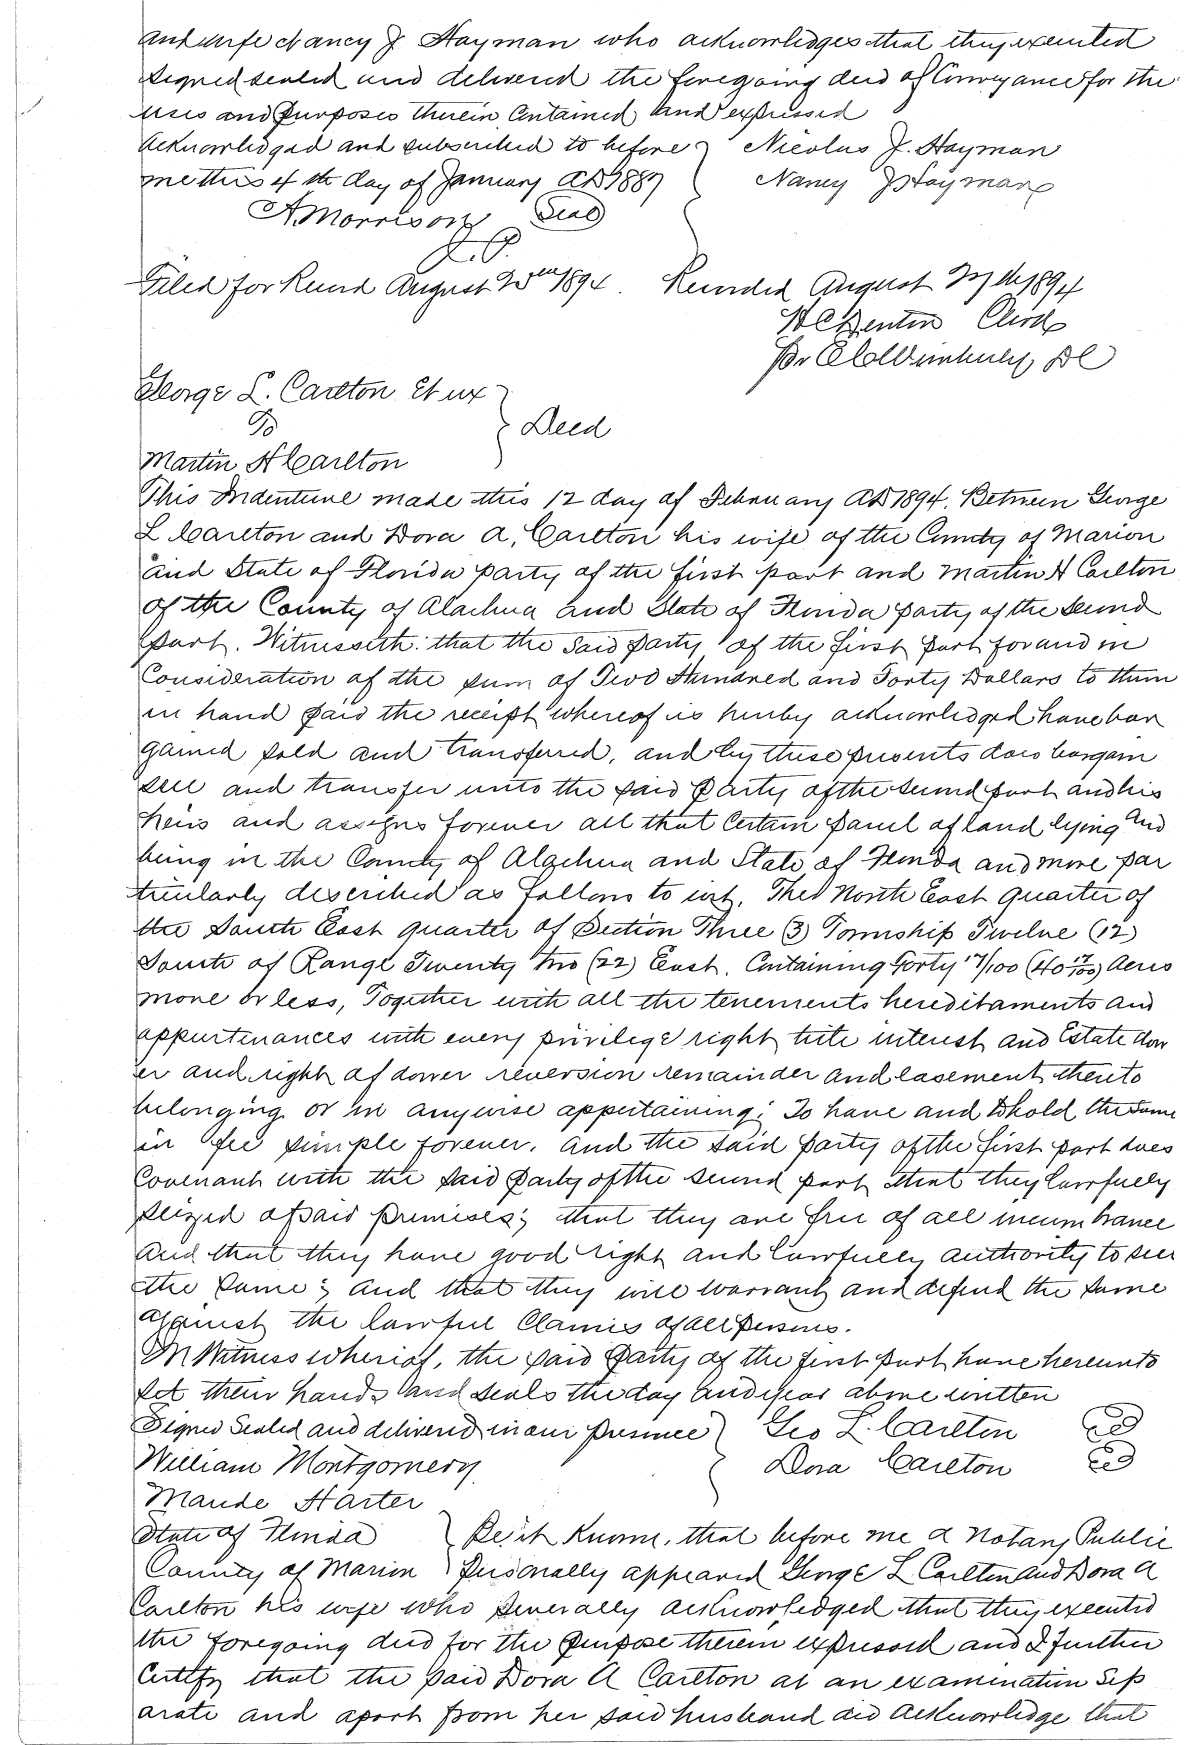 and wife Nancy J Hayman who acknowledges that they executed
signed sealed and delivered the foregoing deed of Conveyance for the
uses and purposes therein Contained and expressed
Acknowledged and subscribed to before } Nicolus J. Hayman
me this 4th day of January AD 1887 } Nancy J Hayman
A Morrison Seal
J.P.
Filed for Record August 25th 1894. Recorded August 27th 1894
H C Denton Clerk
Pr DC
George L. Carlton Et ux
To } Deed
Martin H Carlton
This Indenture made this 12 day of February AD 1894. Between George
L Carlton and Dora A, Carlton his wife of the County of Marion
and State of Florida party of the first part and Martin H Carlton
of the County of Alachua and State of Florida party of the second
part. Witnesseth: that the said party of the first part for and in
Consideration of the sum of Two Hundred and Forty Dollars to them
in hand paid the receipt whereof is hereby acknowledged have bar
gained sold and transferred, and by these presents does bargain
sell and transfer unto the said party of the second part and his
heirs and assigns forever all that certain parcel of land lying and
being in the County of Alachua and State of Florida and more par
ticularly described as follows to wit. The North East quarter of
the South East quarter of Section Three (3) Township Twelve (12)
South of Range Twenty two (22) East. Containing Forty 17/100 (40 17/100) Acres
more or less, Together with all the tenements hereditaments and
appurtenances with every privilege right title interest and Estate dow
er and right of dower reversion remainder and easement thereto
belonging or in anywise appertaining: To have and to hold the same
in fee simple forever. And the said party of the first part does
Covenant with the said party of the second part that they lawfully
seized of said premises; that they are free of all incumbrance
And that they have good right and lawfully authority to sell
the same; and that they will warrant and defend the same
against the lawful Claims of all persons.
In Witness whereof, the said party of the first part have hereunto
set their hands and seals the day and year above written
Signed Sealed and delivered in our presence } Geo L. Carlton Seal
William Montgomery } Dora Carlton Seal
Maude Harter
State of Florida } Be it Known, that before me a Notary Public
County of Marion } personally appeared George L Carlton and Dora A
Carlton his wife who severally acknowledged that they executed
the foregoing deed for the purpose therein expressed and I further
Certify that the said Dora A Carlton at an examination Sep
arate and apart from her said husband did acknowledge that